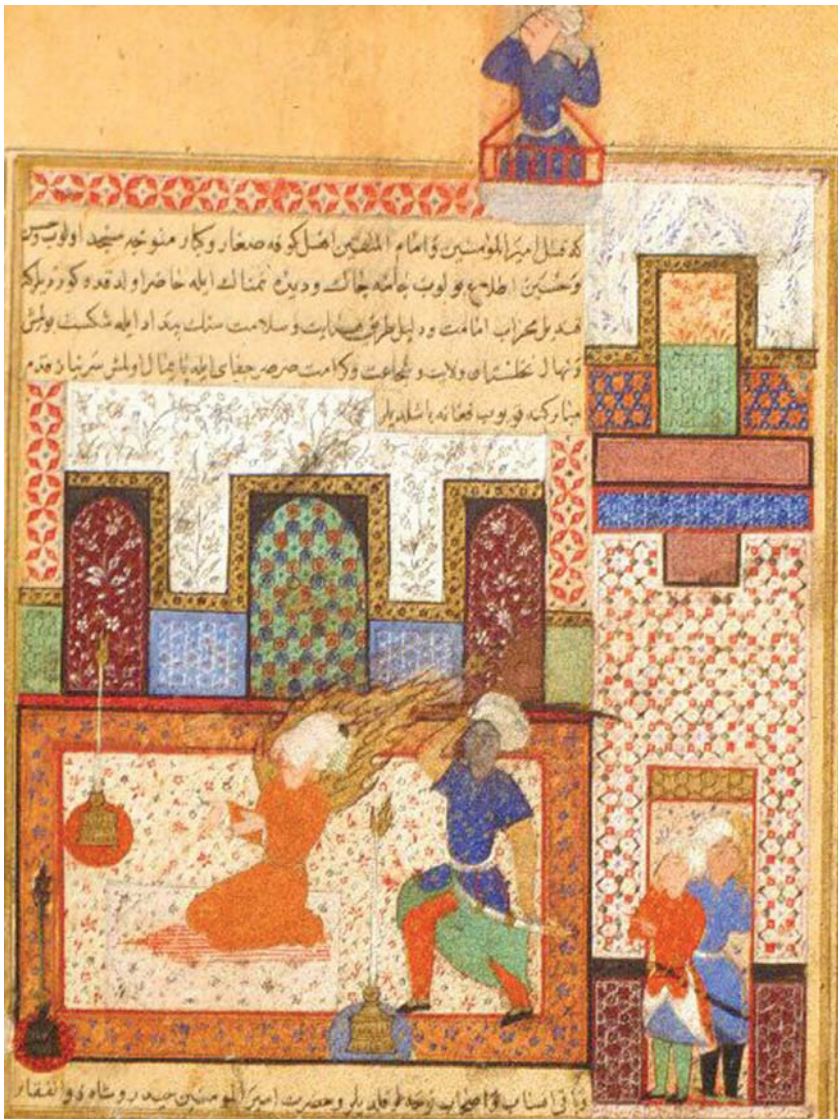 که قتل امیرالمؤمنین و امام المتقین اهل کوفه صغار و کبار متوجه مسجد اولوب حسن
و حسین اطلاع بولوب جامه چاك و دیده نمناك ایله حاضر اولدقده کوردیلرکه
قندیل محراب امامت و دلیل طریق هدایت و سلامت سنك بیداد ایله شکست بولمش
و نهال نخلستان ولایت و شجاعت و کرامت صرصر جفای ایله پایمال اولمش سر نیاز قدم
مبارکنه قویوب فغانه باشلدیلر
و اصحاب و حضرت امیرالمؤمنین حیدر و شاه ذوالفقار